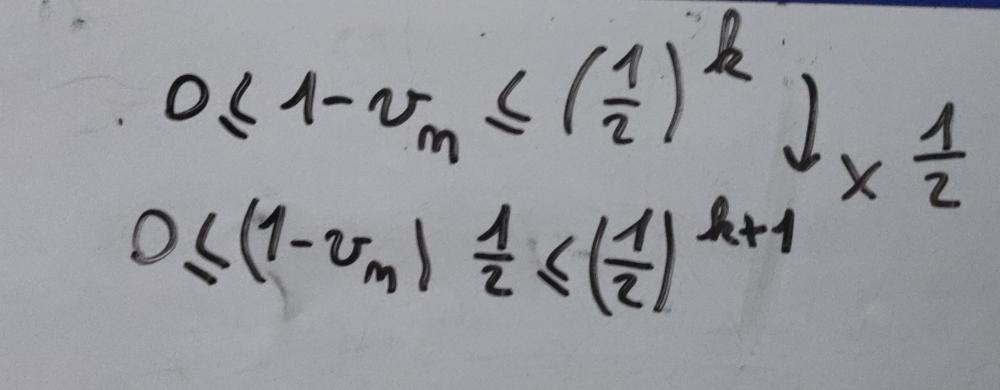 0 ≤ 1 - v_n ≤ (1/2)^k ↓ × 1/2
0 ≤ (1 - v_n) 1/2 ≤ (1/2)^{k+1}